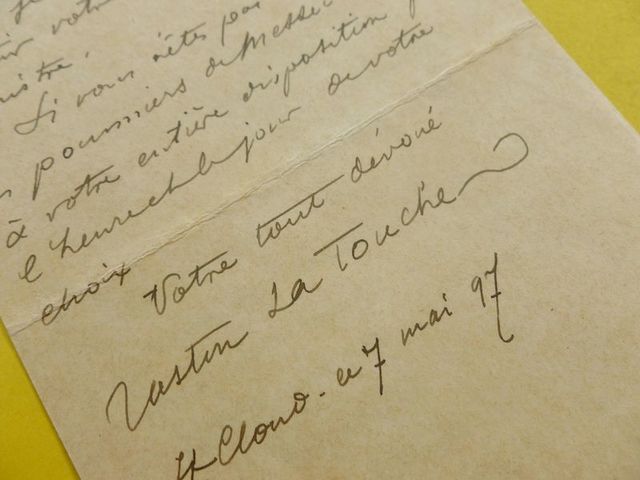 votre
Si vous n'êtes pas
pourriers de Messe
à votre entière disposition
l'heure et le jour de votre
choix
Votre tout dévoué
Gaston La Touche
St Cloud. ce 7 mai 97